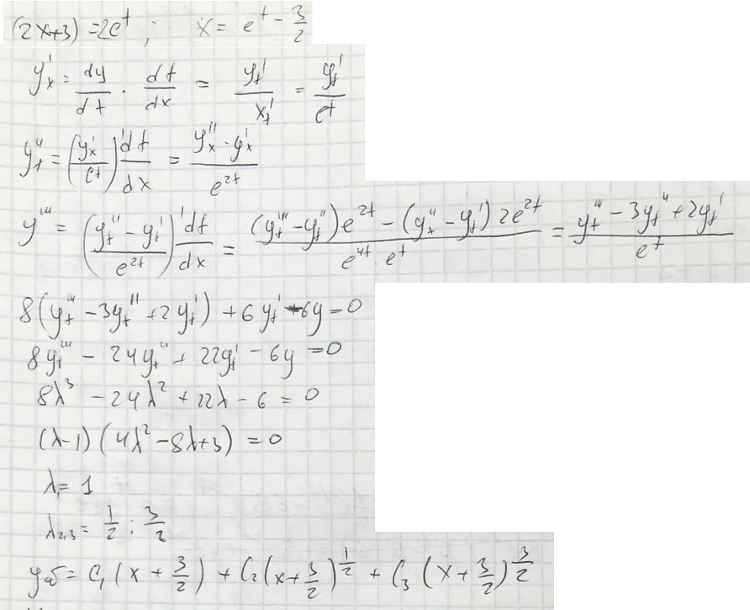 (2x+3) = 2e^t ; x = e^t - 3/2
y'_x = dy/dt · dt/dx = y'_t/x'_t = y'_t/e^t
y''_t = (y'_x/e^t)' dt/dx = (y''_x - y'_x)/e^{2t}
y''' = ((y''_t - y'_t)/e^{2t})' dt/dx = ((y'''_t - y''_t)e^{2t} - (y''_t - y'_t) 2e^{2t})/(e^{4t} · e^t) = (y'''_t - 3y''_t + 2y'_t)/e^t
8(y'''_t - 3y''_t + 2y'_t) + 6y'_t - 6y = 0
8y'''_t - 24y''_t + 22y'_t - 6y = 0
8λ^3 - 24λ^2 + 22λ - 6 = 0
(λ-1)(4λ^2 - 8λ+3) = 0
λ_1 = 1
λ_{2,3} = 1/2 ; 3/2
y_об = C_1(x + 3/2) + C_2(x + 3/2)^{1/2} + C_3(x + 3/2)^{3/2}